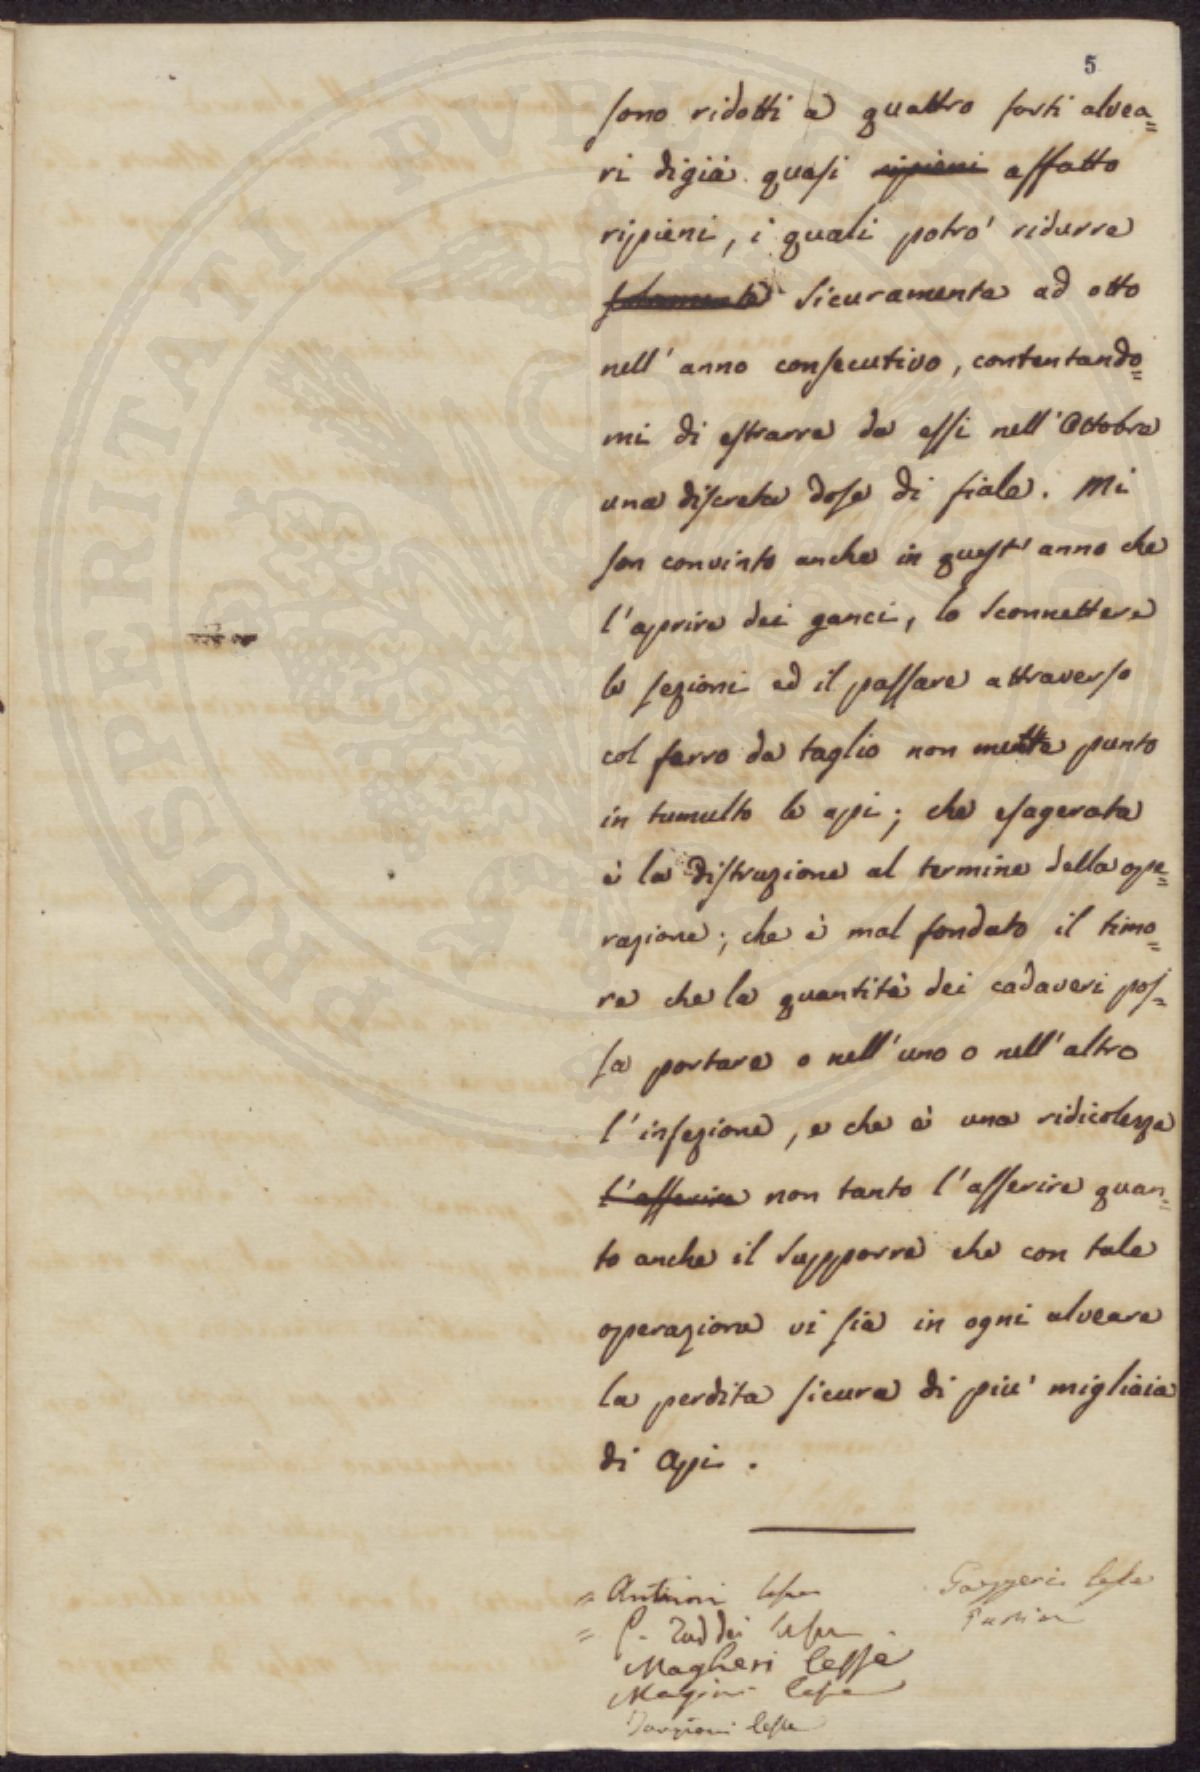 5
sono ridotti a quattro forti alvea=
ri digià quasi ripieni affatto
ripieni, i quali potrò ridurre
sicuramente ad otto
nell'anno consecutivo, contentando=
mi di estrarre da essi nell'Ottobre
una discreta dose di fiale. Mi
son convinto anche in quest'anno che
l'aprire dei ganci, lo sconnettere
le sezioni ed il passare attraverso
col ferro da taglio non mette punto
in tumulto le api; che esagerata
è la distruzione al termine della ope=
razione; che è mal fondato il timo=
re che la quantità dei cadaveri pos=
sa portare o nell'uno o nell'altro
l'infezione, e che è una ridicolezza
l'asserire non tanto l'asserire quan=
to anche il supporre che con tale
operazione vi sia in ogni alveare
la perdita sicura di più migliaia
di Api.
= Antinori lesse
= G. Taddei lesse
Magheri lesse
Magini lesse
Targioni lesse
Gazzeri lesse
PROSPERITATI PVBLICAE